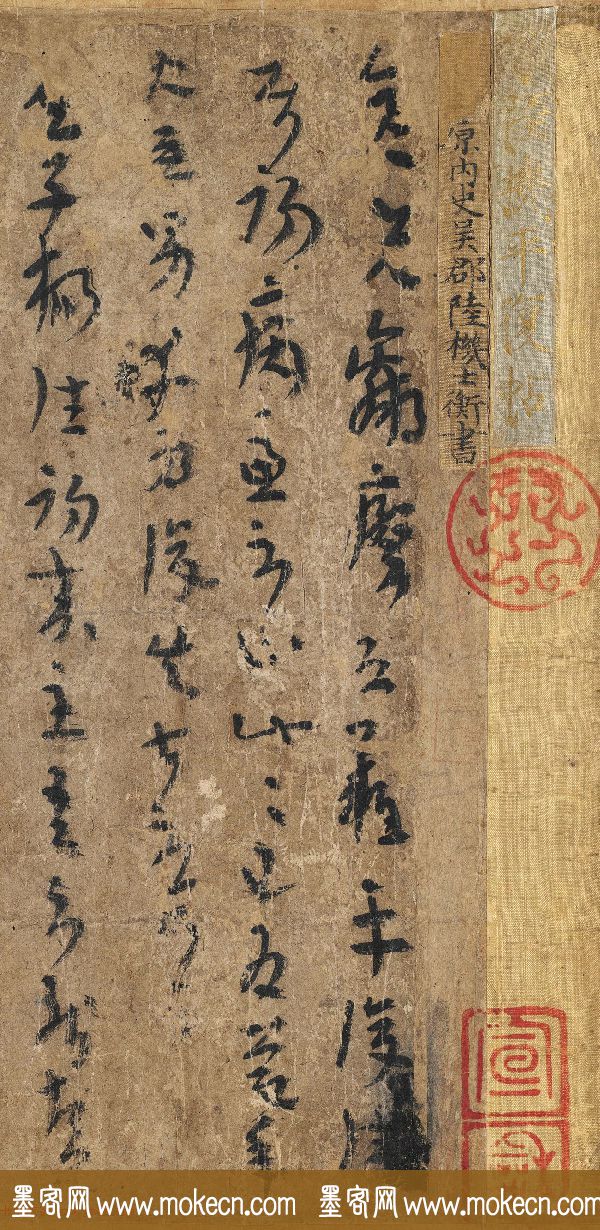 陸機平復帖
原内史吴郡陸機士衡書
彦先羸瘵恐難平復往
屬初病慮不止此々已為慶承
使唯男幸為復失前憂耳
吴子楊往初來主吾不能盡
宣
墨客网 www.mokecn.com 墨客网 www.mokecn.com